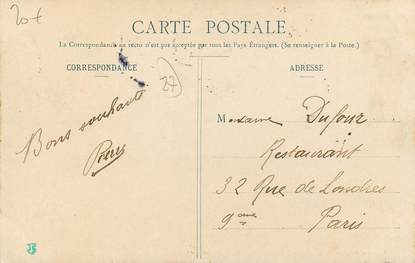 20 €
CARTE POSTALE
La Correspondance au recto n'est pas acceptée par tous les Pays Étrangers. (Se renseigner à la Poste.)
CORRESPONDANCE
ADRESSE
27
Bons souhaits
Madame Dufour
Restaurant
32 Rue de Londres
9eme
Paris